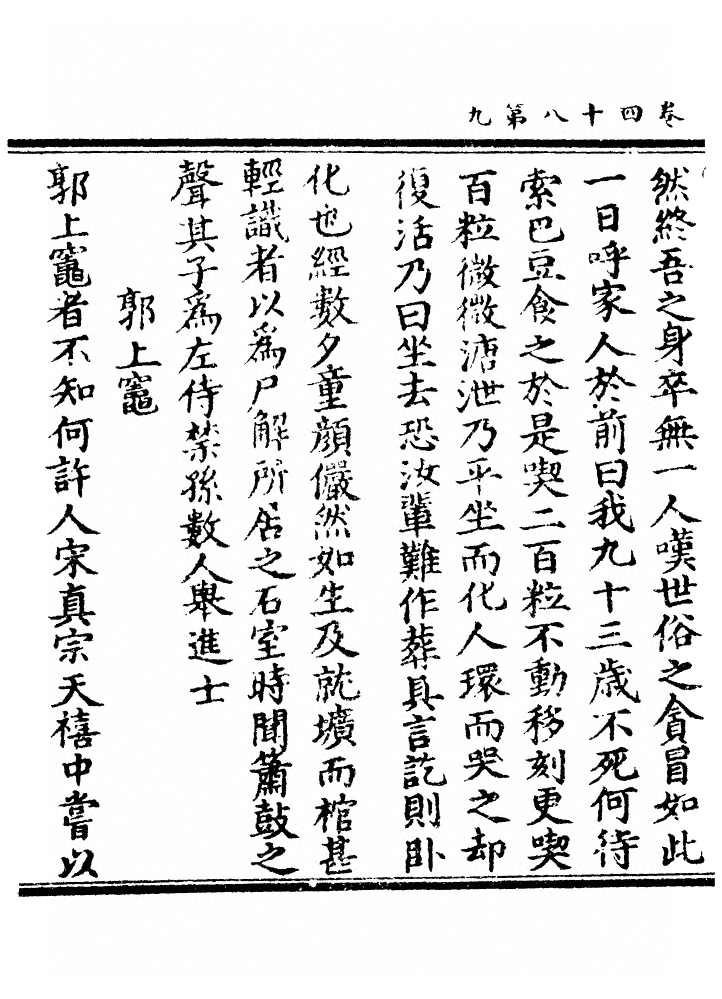 卷四十八第九
然終吾之身卒無一人嘆世俗之貪冒如此
一日呼家人於前曰我九十三歲不死何待
索巴豆食之於是喫二百粒不動移刻更喫
百粒微微溏泄乃平坐而化人環而哭之却
復活乃曰坐去恐汝輩難作葬具言訖則卧
化也經數夕童顔儼然如生及就壙而棺甚
輕識者以爲尸解所居之石室時聞簫鼓之
聲其子爲左侍禁孫數人舉進士
郭上竈
郭上竈者不知何許人宋真宗天禧中嘗以